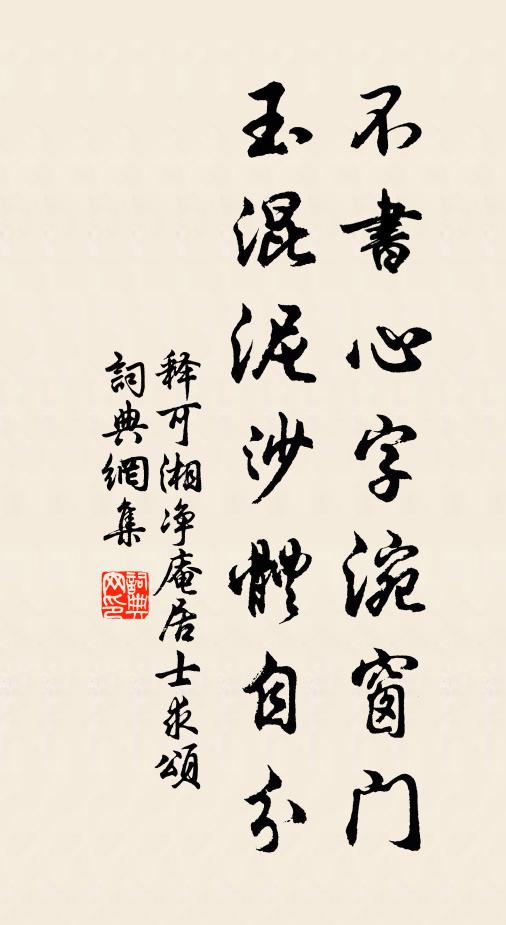 不書心字涴窗門
玉混泥沙體自分
释可湘净庵居士求頌
詞典網集
詞典网印